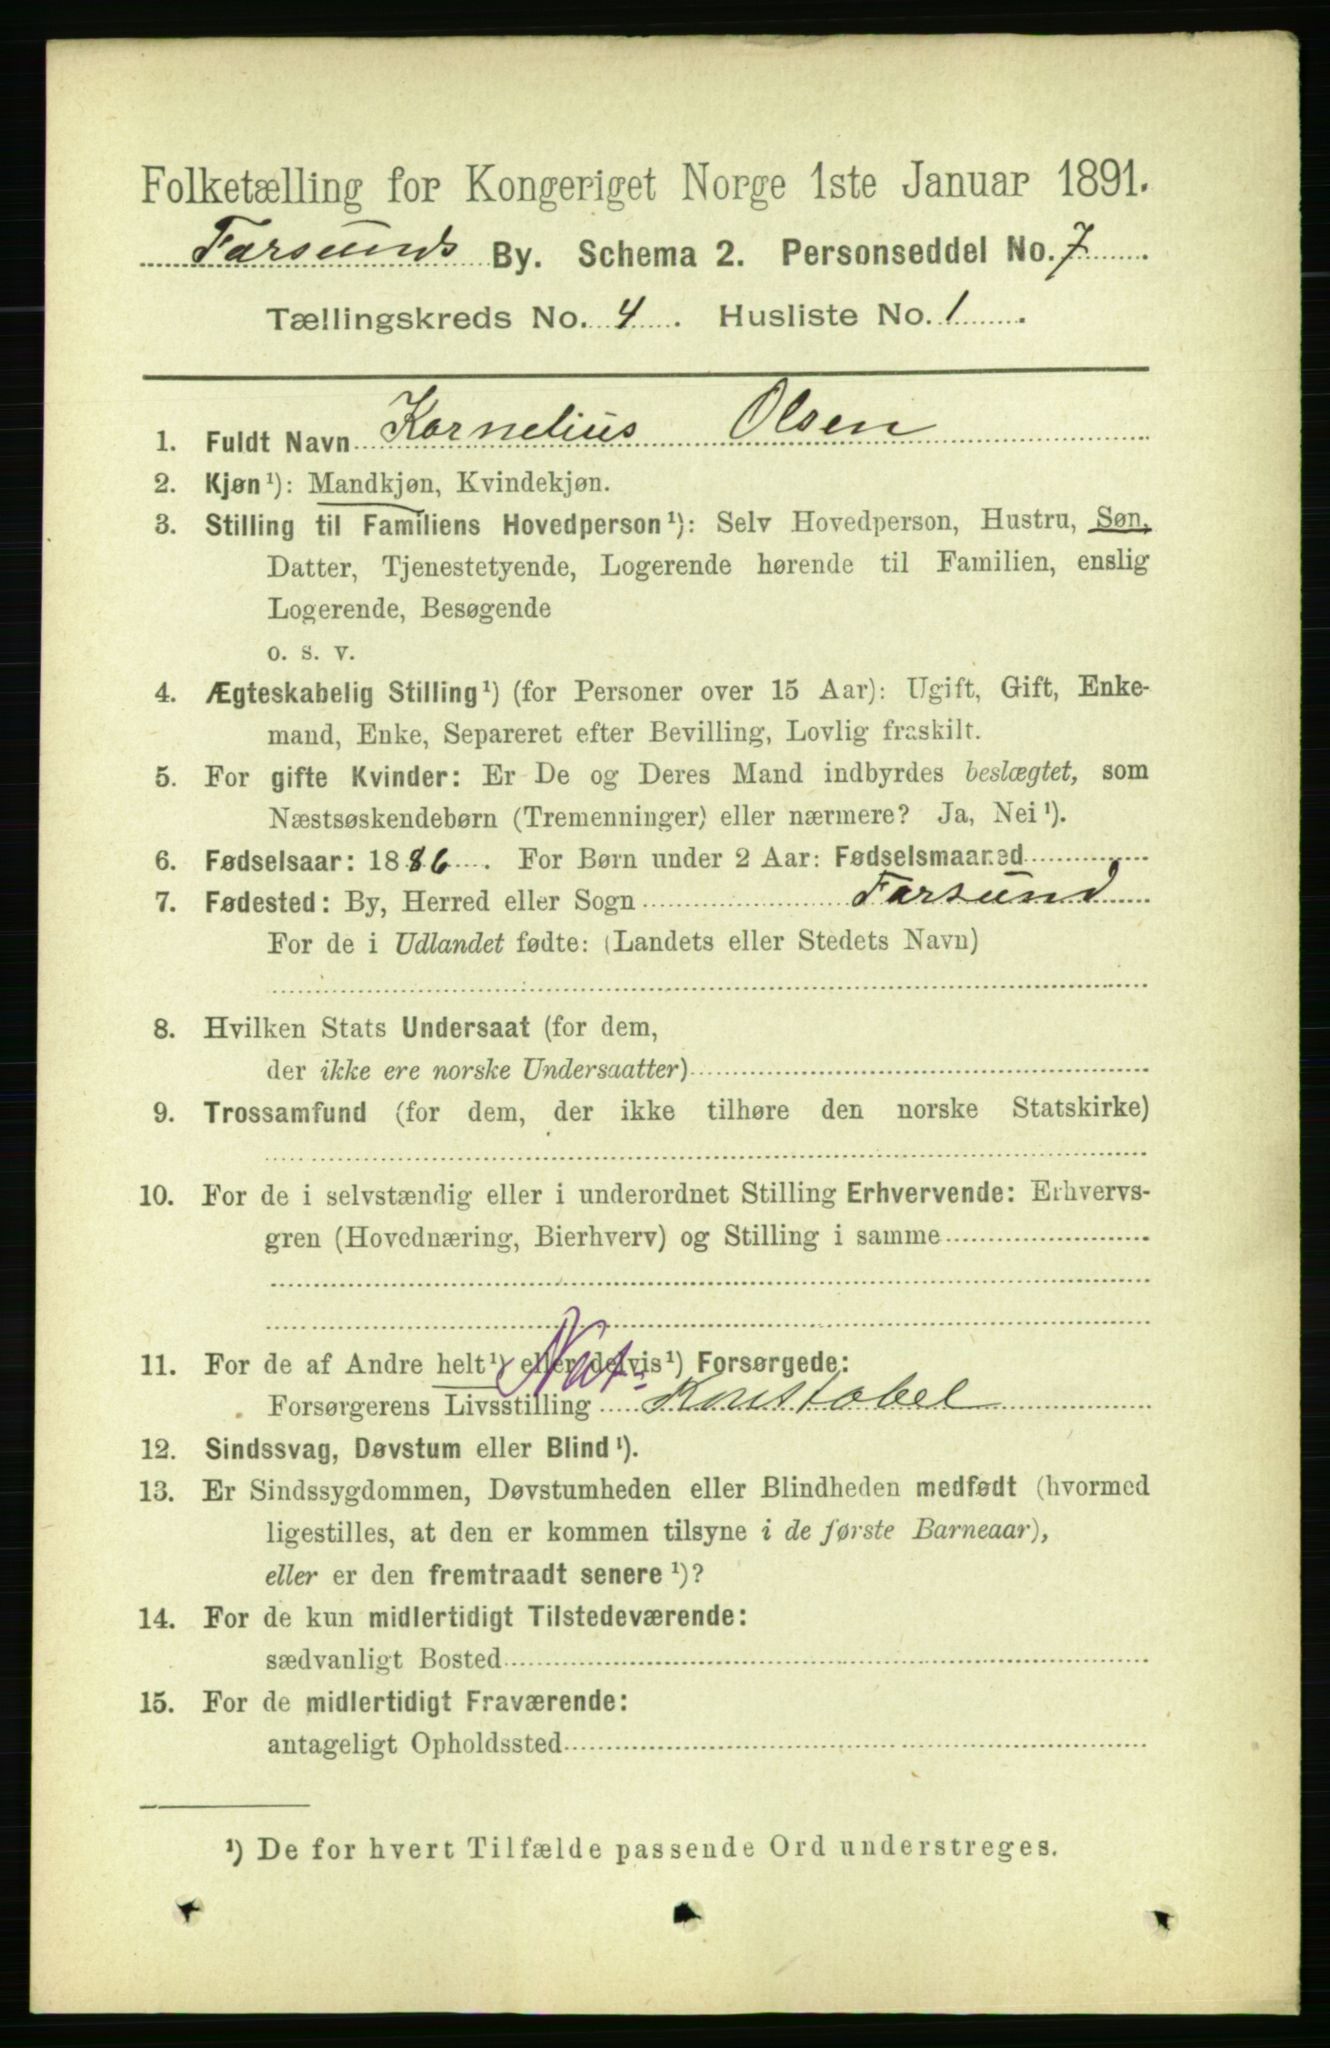 Folketælling for Kongeriget Norge 1ste Januar 1891.
Farsunds By. Schema 2. Personseddel No. 7
Tællingskreds No. 4. Husliste No. 1.
1. Fuldt Navn Kornelius Olsen
2. Kjøn¹): Mandkjøn, Kvindekjøn.
3. Stilling til Familiens Hovedperson¹): Selv Hovedperson, Hustru, Søn,
Datter, Tjenestetyende, Logerende hørende til Familien, enslig
Logerende, Besøgende
o. s. v.
4. Ægteskabelig Stilling¹) (for Personer over 15 Aar): Ugift, Gift, Enke-
mand, Enke, Separeret efter Bevilling, Lovlig fraskilt.
5. For gifte Kvinder: Er De og Deres Mand indbyrdes beslægtet, som
Næstsøskendebørn (Tremenninger) eller nærmere? Ja, Nei¹).
6. Fødselsaar: 1886. For Børn under 2 Aar: Fødselsmaaned
7. Fødested: By, Herred eller Sogn Farsund
For de i Udlandet fødte: (Landets eller Stedets Navn)
8. Hvilken Stats Undersaat (for dem,
der ikke ere norske Undersaatter)
9. Trossamfund (for dem, der ikke tilhøre den norske Statskirke)
10. For de i selvstændig eller i underordnet Stilling Erhvervende: Erhvervs-
gren (Hovednæring, Bierhverv) og Stilling i samme
11. For de af Andre helt¹) eller delvis¹) Forsørgede:
Forsørgerens Livsstilling Nat- Konstabel
12. Sindssvag, Døvstum eller Blind¹).
13. Er Sindssygdommen, Døvstumheden eller Blindheden medfødt (hvormed
ligestilles, at den er kommen tilsyne i de første Barneaar),
eller er den fremtraadt senere¹)?
14. For de kun midlertidigt Tilstedeværende:
sædvanligt Bosted
15. For de midlertidigt Fraværende:
antageligt Opholdssted
¹) De for hvert Tilfælde passende Ord understreges.